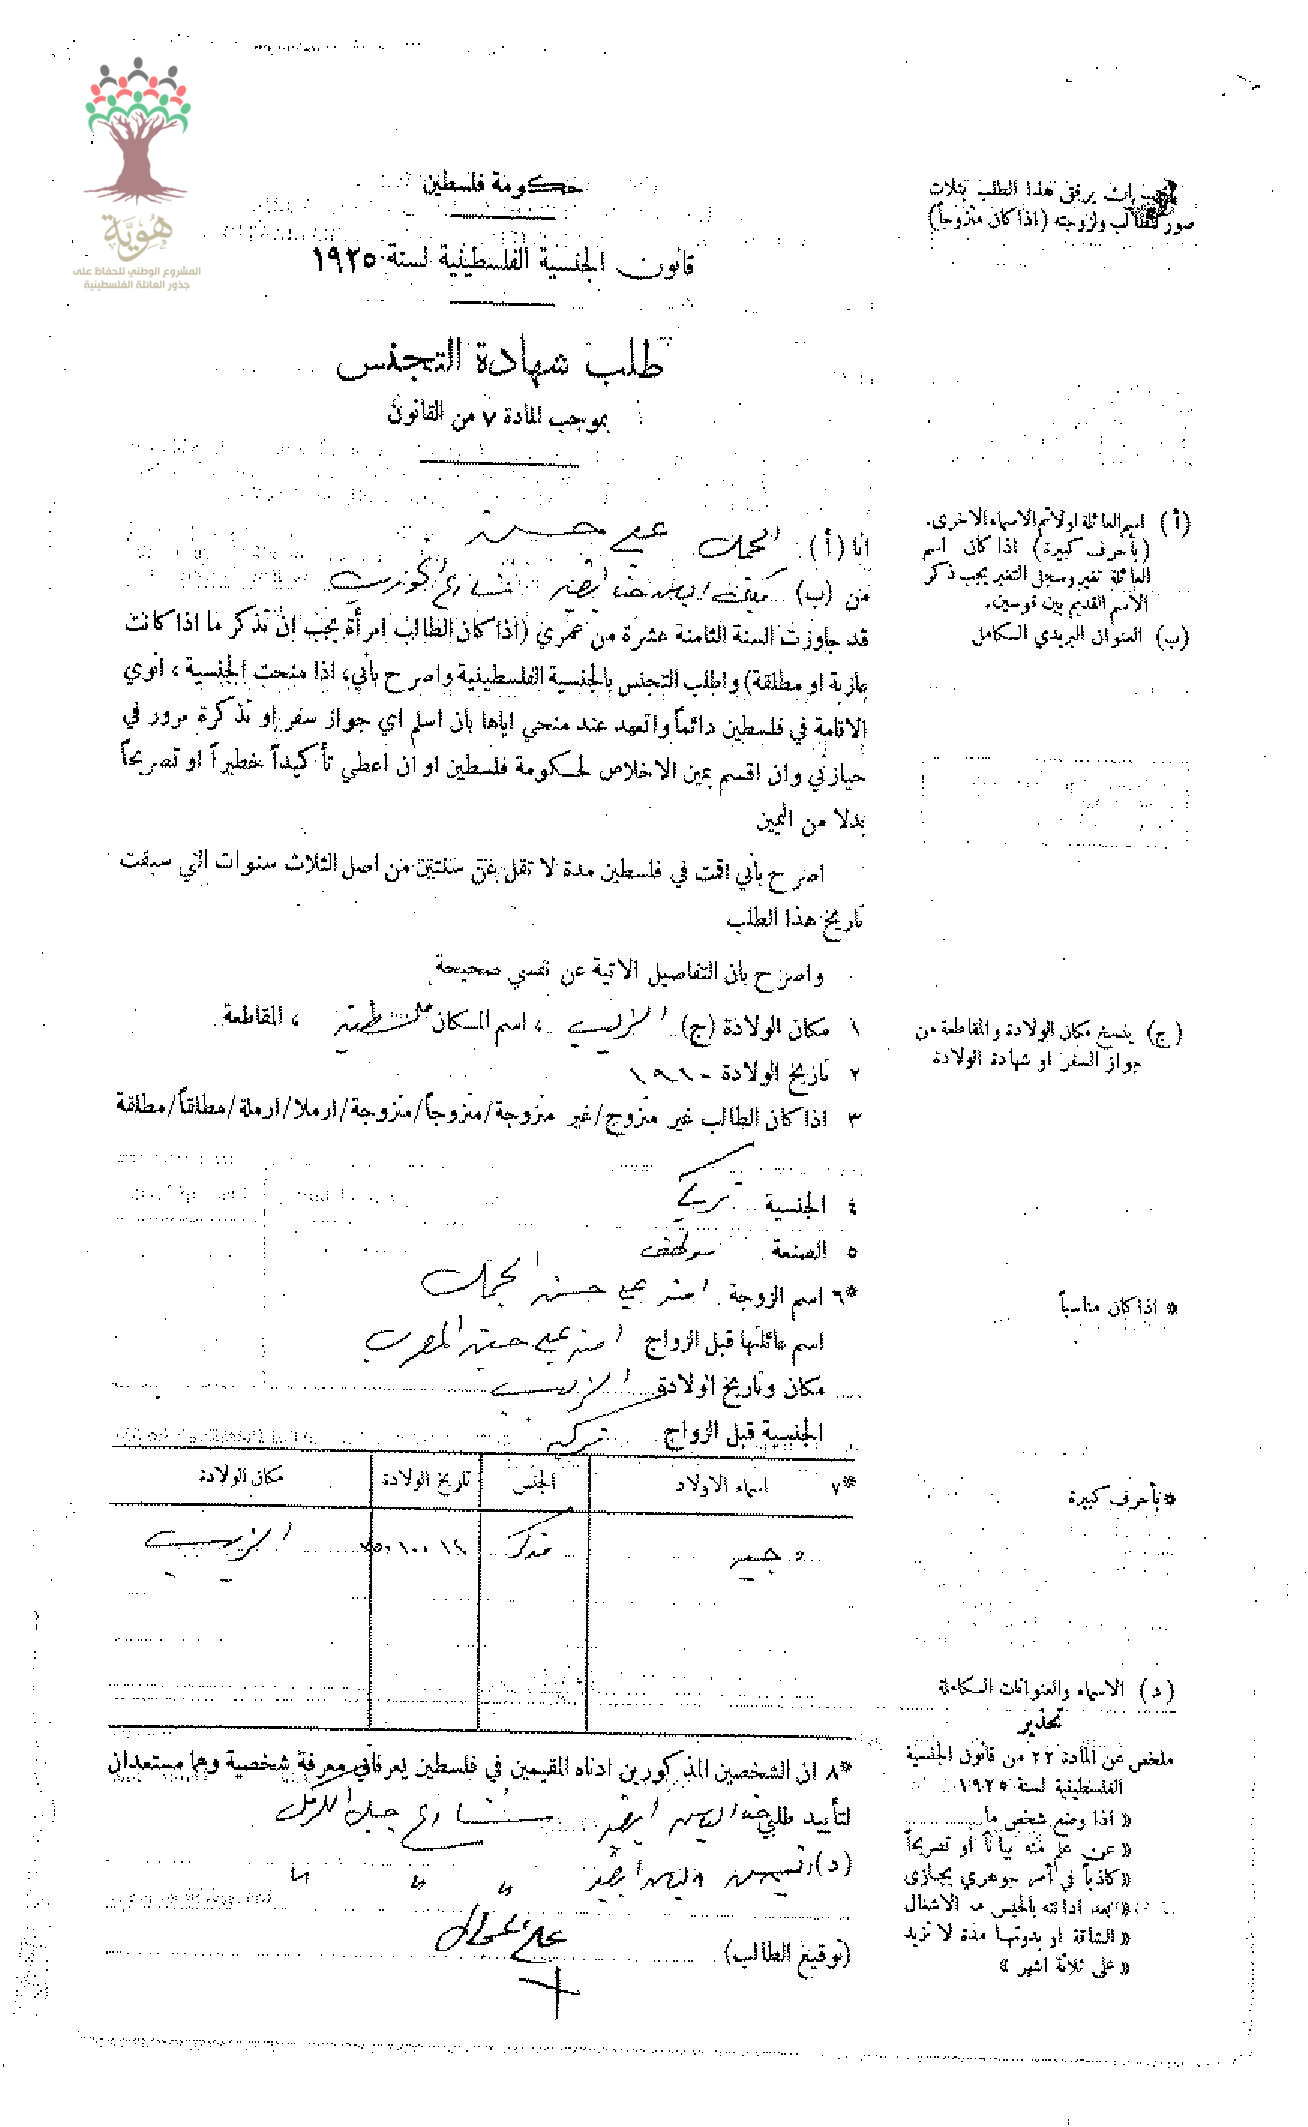 هُوِيَّة
المشروع الوطني للحفاظ على
جذور العائلة الفلسطينية
حكومة فلسطين
يجب ان يرفق هذا الطلب بثلاث
صور للطالب ولزوجته (اذا كان متزوجاً)
قانون الجنسية الفلسطينية لسنة ١٩٢٥
طلب شهادة التجنس
بموجب المادة ٧ من القانون
(أ) اسم العائلة اولا ثم الاسماء الاخرى.
(بأحرف كبيرة) اذا كان اسم
العائلة تغير وسجل التغير يجب ذكر
الاسم القديم بين قوسين.
(ب) العنوان البريدي الكامل
انا (أ) الجمل علي حسين
من (ب)
قد جاوزت السنة الثامنة عشرة من عمري (اذا كان الطالب امرأة يجب ان تذكر ما اذا كانت
عازبة او مطلقة) واطلب التجنس بالجنسية الفلسطينية واصرح بأني، اذا منحت الجنسية، انوي
الاقامة في فلسطين دائماً واتعهد عند منحي اياها بان اسلم اي جواز سفر او تذكرة مرور في
حيازتي وان اقسم يمين الاخلاص لحكومة فلسطين او ان اعطي تأكيداً خطيراً او تصريحاً
بدلا من اليمين
اصرح بأني اقمت في فلسطين مدة لا تقل عن سنتين من اصل الثلاث سنوات التي سبقت
تاريخ هذا الطلب
واصرح بان التفاصيل الاتية عن نفسي صحيحة
١ مكان الولادة (ج) الزيب ، اسم المكان فلسطين ، المقاطعة
(ج) ينسخ مكان الولادة والمقاطعة من
جواز السفر او شهادة الولادة
٢ تاريخ الولادة ١٩١٠
٣ اذا كان الطالب غير متزوج/غير متزوجة/متزوجاً/متزوجة/ارملا/ارملة/مطلقاً/مطلقة
٤ الجنسية تركي
٥ الصنعة
*٦ اسم الزوجة امنه علي حسين الجمل
* اذا كان مناسباً
اسم عائلتها قبل الزواج امنه علي حسين
مكان وتاريخ الولادة الزيب
الجنسية قبل الزواج تركيه
*٧ اسماء الاولاد الجنس تاريخ الولادة مكان الولادة
* بأحرف كبيرة
مذكر الزيب
(د) الاسماء والعنوانات الكاملة
تحذير
ملخص عن المادة ٢٢ من قانون الجنسية
الفلسطينية لسنة ١٩٢٥
« اذا وضع شخص ما
« عن علم منه بياناً او تصريحاً
« كاذباً في أمر جوهري يجازى
« بعد ادانته بالحبس مع الاشغال
« الشاقة او بدونها مدة لا تزيد
« على ثلاثة اشهر »
*٨ ان الشخصين المذكورين ادناه المقيمين في فلسطين يعرفاني معرفة شخصية وهما مستعدان
لتأييد طلبي حنا الياس شارع جبل الكرمل
(د) الياس " " "
(توقيع الطالب) علي الجمل